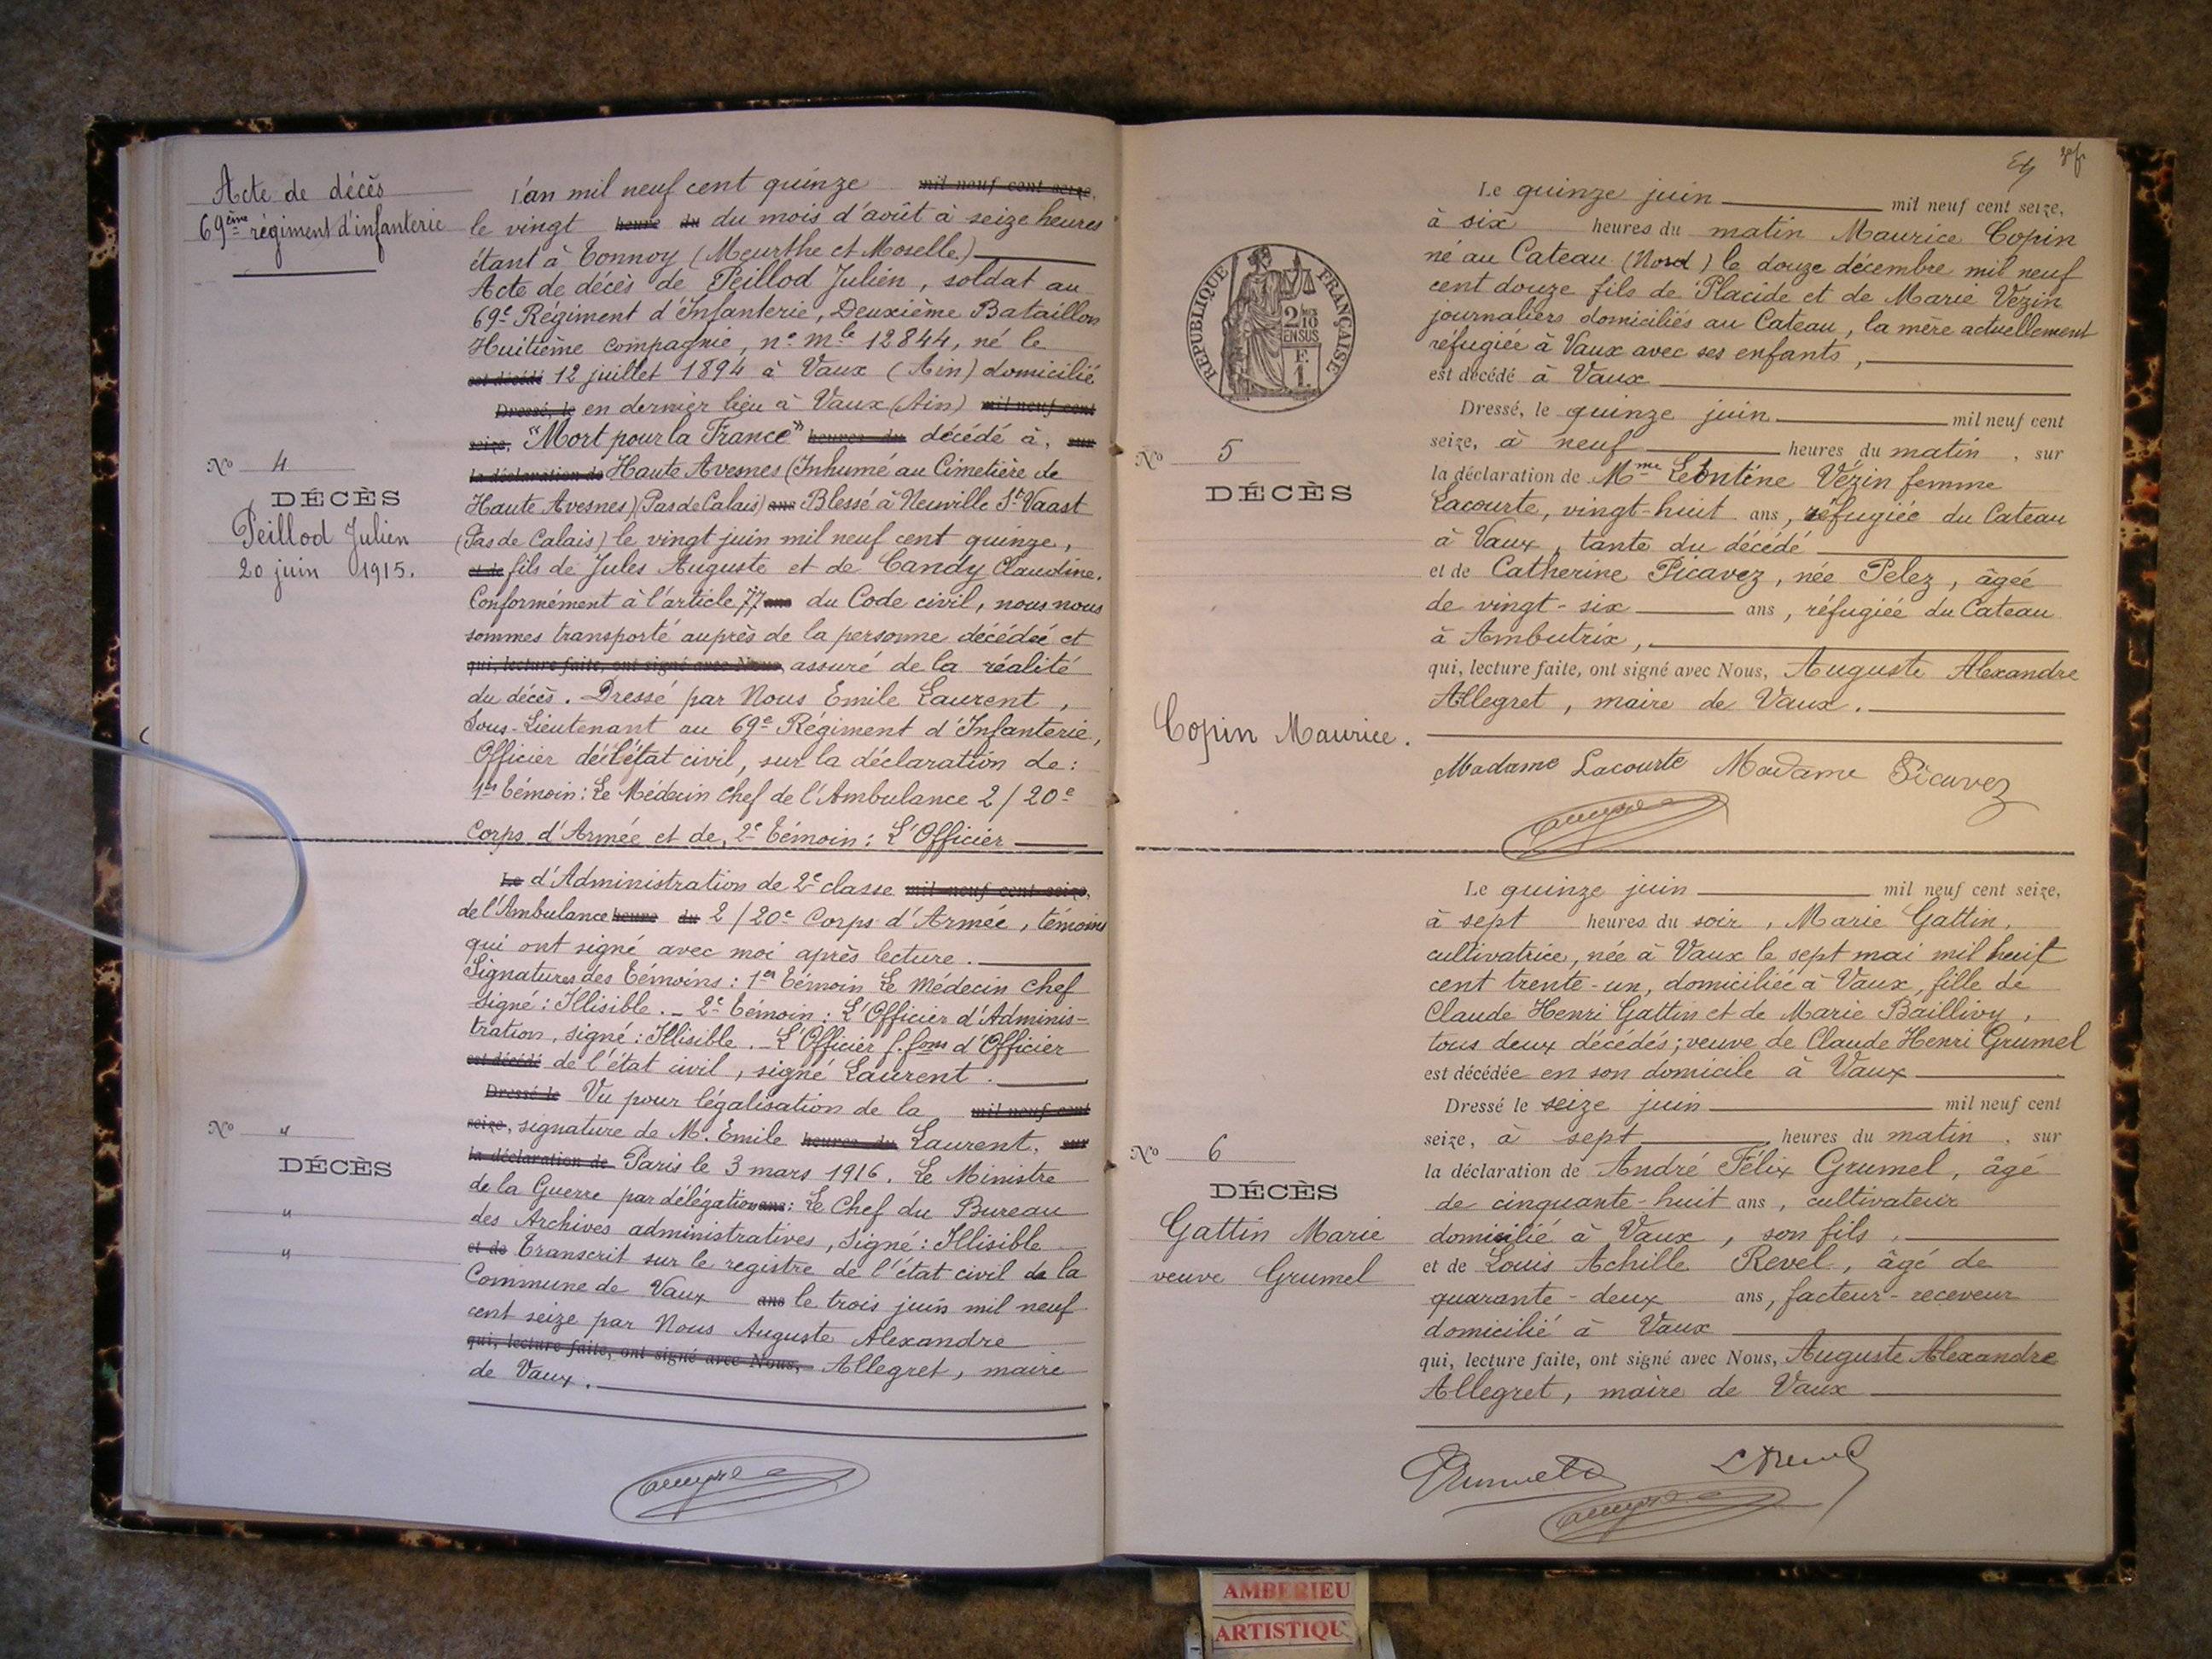 Acte de décès
69ème régiment d'infanterie
L'an mil neuf cent quinze mil neuf cent seize,
le vingt heure du du mois d'août à seize heures
étant à Tonnoy (Meurthe et Moselle)
Acte de décès de Peillod Julien, soldat au
69e Régiment d'Infanterie, Deuxième Bataillon
Huitième compagnie, n° mle 12844, né le
est décédé 12 juillet 1894 à Vaux (Ain) domicilié
Dressé, le en dernier lieu à Vaux (Ain) mil neuf cent
seize, "Mort pour la France" heures du décédé à, sur
la déclaration de Haute Avesnes (Inhumé au Cimetière de
Haute Avesnes) (Pas de Calais) ans Blessé à Neuville St Vaast
(Pas de Calais) le vingt juin mil neuf cent quinze,
et de fils de Jules Auguste et de Candy Claudine.
Conformément à l'article 77 ans du Code civil, nous nous
sommes transporté auprès de la personne décédée et
qui, lecture faite, ont signé avec Nous, assuré de la réalité
du décès. Dressé par Nous Emile Laurent,
Sous-Lieutenant au 69e Régiment d'Infanterie,
Officier de l'état civil, sur la déclaration de :
1er témoin : Le Médecin chef de l'Ambulance 2/20e
Corps d'Armée et de, 2e témoin : L'Officier
No 4
DÉCÈS
Peillod Julien
20 juin 1915.
Le d'Administration de 2e classe mil neuf cent seize,
de l'Ambulance heure du 2/20e Corps d'Armée, témoins
qui ont signé avec moi après lecture.
Signatures des témoins : 1er témoin Le Médecin chef
signé : Illisible. - 2e témoin : L'Officier d'Adminis-
tration, signé : Illisible. - L'Officier f. fons d'Officier
est décédé de l'état civil, signé Laurent.
Dressé le Vu pour légalisation de la mil neuf cent
seize, signature de M. Emile heures du Laurent, sur
la déclaration de Paris le 3 mars 1916. Le Ministre
de la Guerre par délégation ans : Le Chef du Bureau
des Archives administratives, signé : Illisible
et de Transcrit sur le registre de l'état civil de la
Commune de Vaux ans le trois juin mil neuf
cent seize par Nous Auguste Alexandre
qui, lecture faite, ont signé avec Nous, Allegret, maire
de Vaux.
No "
DÉCÈS
"
"
Le quinze juin mil neuf cent seize,
à six heures du matin Maurice Copin
né au Cateau (Nord) le douze décembre mil neuf
cent douze fils de Placide et de Marie Vézin
journaliers domiciliés au Cateau, la mère actuellement
réfugiée à Vaux avec ses enfants,
est décédé à Vaux
Dressé, le quinze juin mil neuf cent
seize, à neuf heures du matin, sur
la déclaration de Mme Léontine Vézin femme
Lacourte, vingt-huit ans, réfugiée du Cateau
à Vaux, tante du décédé
et de Catherine Picavez, née Pelez, âgée
de vingt-six ans, réfugiée du Cateau
à Ambutrix,
qui, lecture faite, ont signé avec Nous, Auguste Alexandre
Allegret, maire de Vaux.
Madame Lacourte Madame Picavez
RÉPUBLIQUE FRANÇAISE
2/10
EN SUS
F.
1.
No 5
DÉCÈS
Copin Maurice.
Le quinze juin mil neuf cent seize,
à sept heures du soir, Marie Gattin,
cultivatrice, née à Vaux le sept mai mil huit
cent trente-un, domiciliée à Vaux, fille de
Claude Henri Gattin et de Marie Baillivy,
tous deux décédés ; veuve de Claude Henri Grumel
est décédée en son domicile à Vaux
Dressé le seize juin mil neuf cent
seize, à sept heures du matin, sur
la déclaration de André Félix Grumel, âgé
de cinquante-huit ans, cultivateur
domicilié à Vaux, son fils,
et de Louis Achille Revel, âgé de
quarante-deux ans, facteur-receveur
domicilié à Vaux
qui, lecture faite, ont signé avec Nous, Auguste Alexandre
Allegret, maire de Vaux
No 6
DÉCÈS
Gattin Marie
veuve Grumel
AMBERIEU
ARTISTIQU